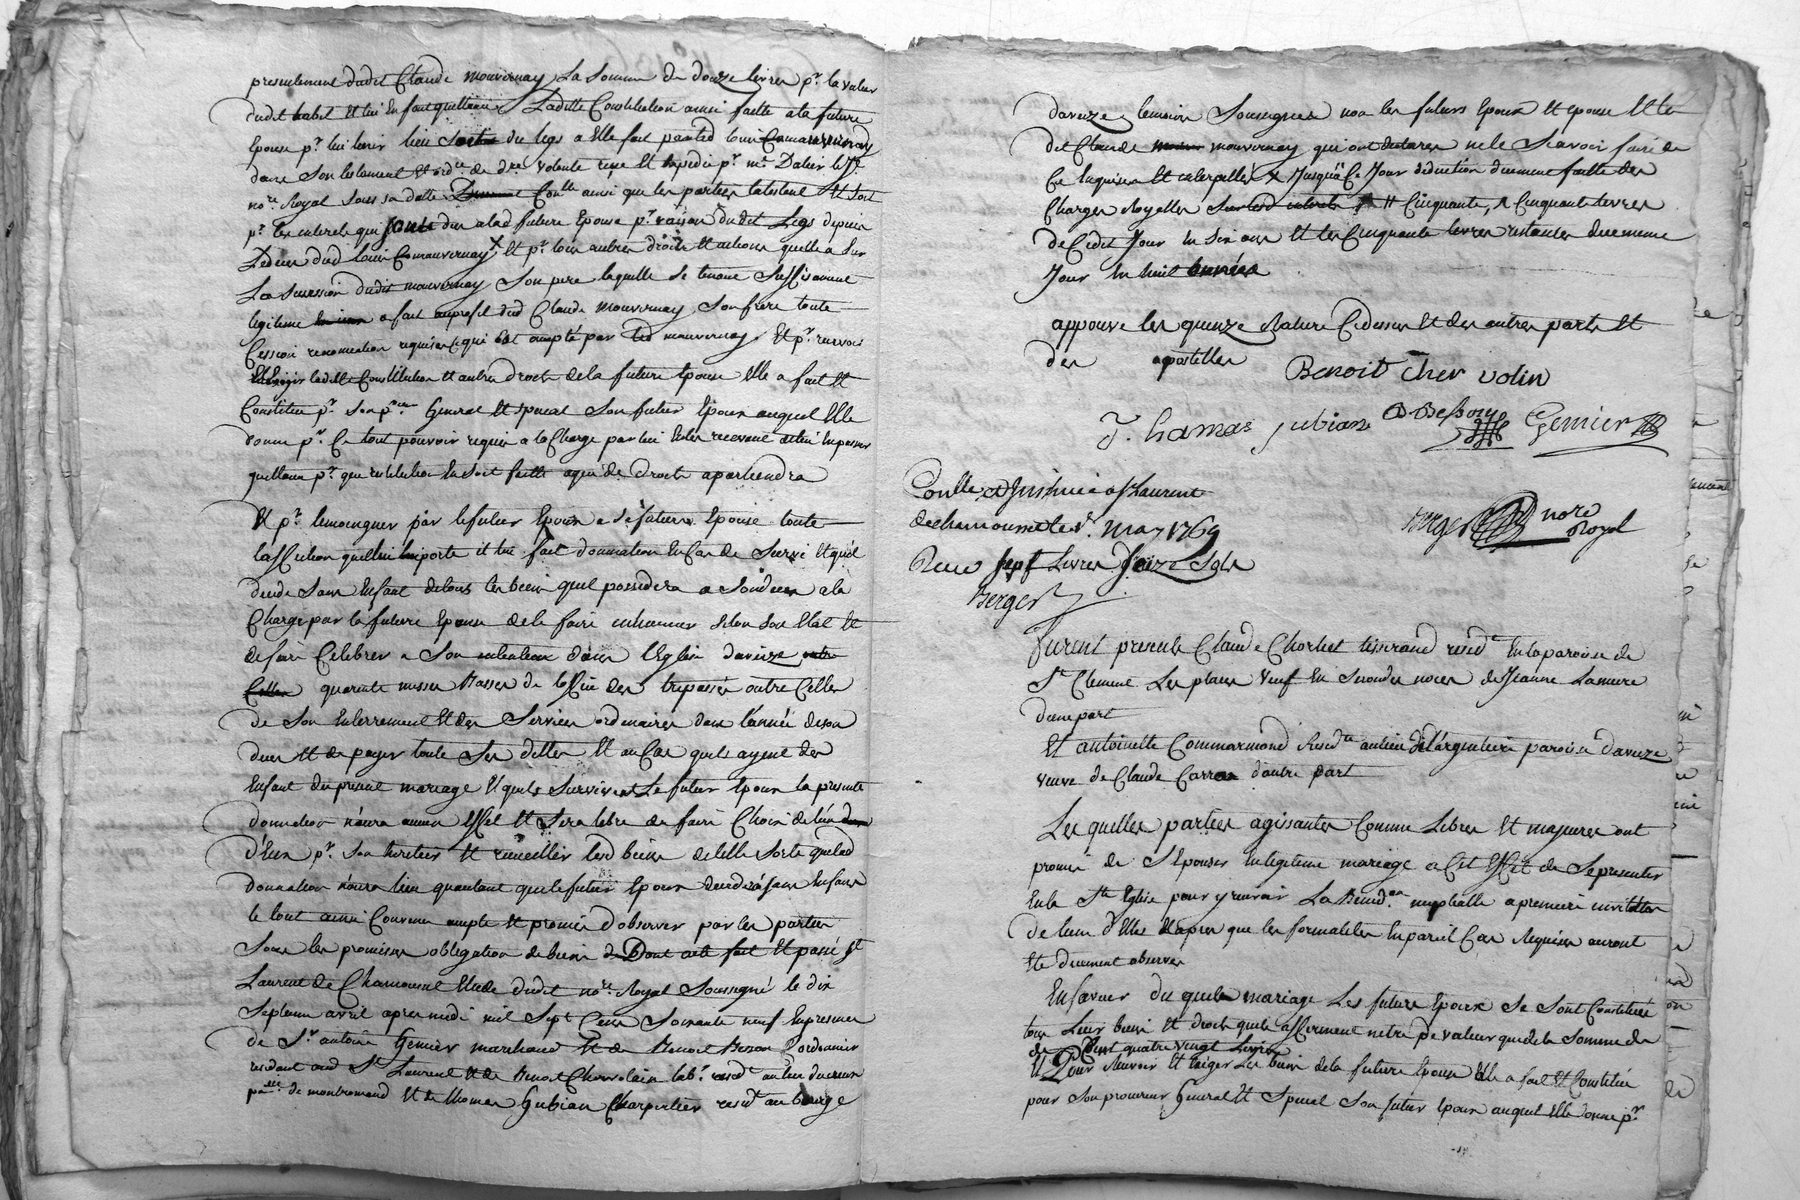 presentement dudit Claude mouvernay La Somme de douze livres pr. la valeur
dudit habit Et lui En fait quittance Laditte Constitution ainsi faitte a la future
Epouse pr. lui tenir lieu du legs a Elle fait par led Louis Comauvernay
dans Son testament Et ord.re de d.re volonte reçu Et Expedié pr. me. Dalier le Je.
no.re Royal Sous sa datte Con.lle ainsi que les parties lattestent Et Soit
pr. les interets qui sont dus a lad future Epouse pr. raison du dit Legs depuis
Ledeces dud Louis Comauvernay Et pr. tous autres droits Et actions quelle a Sur
La Succession dudit mouvernay Son pere laquelle Se trouve Suffisamment
legitime a fait au profit dud Claude mouvernay Son frere toute
Cession renonciation requise qui Est accepté par led mouvernay, Et pr. recevoir
Et Exiger laditte Constitution Et autres droits de la future Epouse Elle a fait Et
Constitue pr. Son pr.eur General Et Special Son futur Epoux auquel Elle
donne pr. Ce tout pouvoir requis a la Charge par lui Enles recevant d'en passer
quittance pr. que restitution En soit faitte a qui de droit apartiendra
Et pr. temoigner par le futur Epoux a la future Epouse toute
laffection quelle lui porte il lui fait donnation En Cas de Survie Et quil
decede Sans Enfant de tous les biens quil possedera a Son deces a la
Charge par la future Epouse de le faire inhumer Selon Son Etat Et
de faire Celebrer a Son intention dans l'Eglise daveize
quarante messes Basses de loffice des trepassés outre Celles
de Son Enterrement Et des Services ordinaires dans l'année de son
deces Et de payer toute Ses dettes Et au Cas quils ayent des
Enfant du present mariage Et quils Survivent Le futur Epoux la presente
donnation n'aura aucun Effet Et Sera libre de faire Choix de lun
d'Eux pr. Son heritier Et recueillir lesd biens de telle Sorte que lad
donnation n'aura lieu quautant que le futur Epoux decedera Sans Enfans
le tout ainsi Convenu accepté Et promis d'observer par les parties
Sous les promesses obligation de biens Dont acte fait Et passé St
Laurent de Chamousset Etude dudit no.re Royal Soussigné le dix
Septieme avril apres midi mil Sept Cens Soixante neuf En presence
de Sr. antoine Geniér marchand Et de Benoit Besson Cordonnier
residant aud St Laurent Et de Benoit Chervolin lab.r resid.t au lieu
pa.sse de montromand Et de thomas Gubian Charpentier resid.t au bourg
daveize temoins Soussignés non les futurs Epoux Et Epouse Et le
dit Claude mouvernay qui ont declarés ne le Scavoir faire de
Ce Enquis Et interpellés x Jusquà Ce Jour deduction duement faitte des
Charges Royalles Cinquante, Cinquante livres
de Cedit Jour En Six ans Et les Cinquante livres restantes du meme
Jour En huit années
appouve les quinze Rature Cidessus Et des autres parts Et
des apostilles
Benoit Cher volin
T. hamas jubian B Besson Genier
Con.lle et Insinué a St Laurent
de chamousset le 1er. may 1769
Recu sept Livres Seize Sols
Berger
Berger nore
Royal
Furent presents Claude Chorlet tisserand resid.t En la paroisse de
St Clement Les places Veuf En Secondes noces de Jeanne Lamure
dune part
Et antoinette Commarmond Resid.te au lieu de l'argentiere paroisse daveize
veuve de Claude Carra d'autre part
Les quelles parties agissantes Comme Libres Et majeures ont
promis de S'Epouser En legitime mariage a Cet Effet de Se presenter
En la Ste Eglise pour y recevoir La Bened.on nuptialle a premiere invitation
de lun d'Elles Et apres que les formalités En pareil Cas Requises auront
Eté duement observées
En faveur du quels mariage Les future Epoux Se Sont Constitués
tous Leurs biens Et droits quils afferment n'etre De valeur que de la Somme de
de Cent quatre vingt Livres
Et Pour Recevoir Et Exiger Les biens de la future Epouse Elle a fait Et Constitué
pour Son procureur General Et Special Son futur Epoux auquel Elle donne pr.